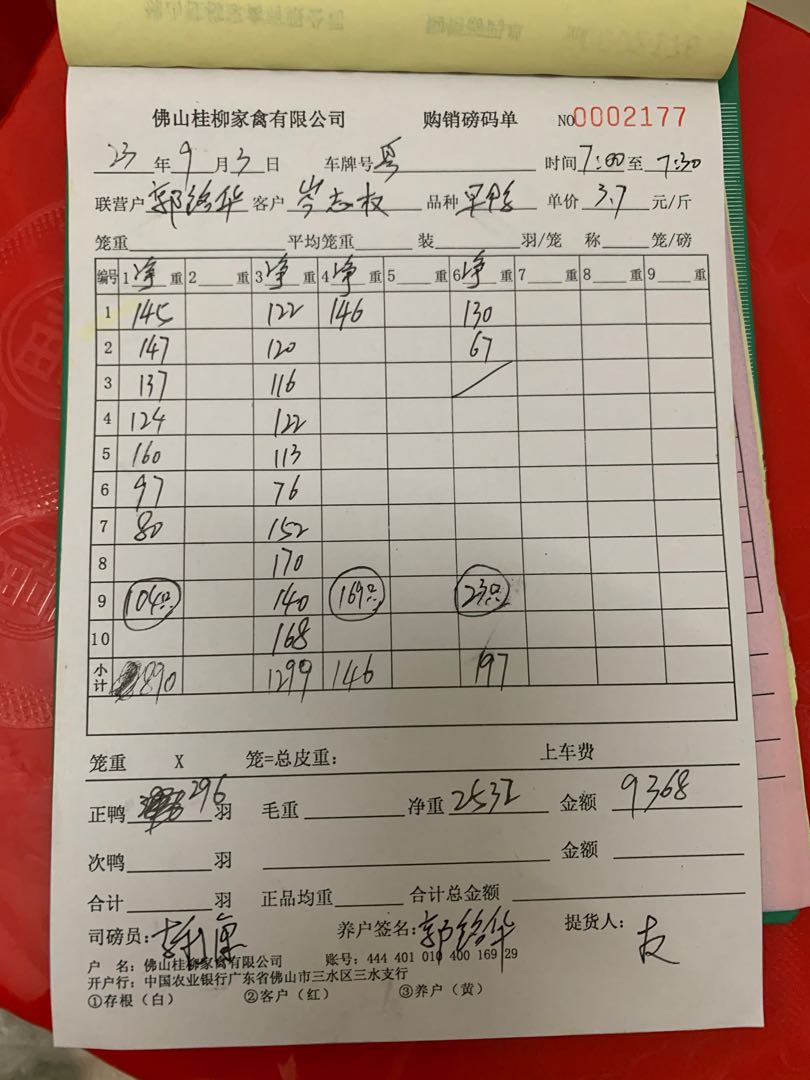 佛山桂柳家禽有限公司 购销磅码单 NO0002177
23年9月3日 车牌号 时间7:00至7:30
联营户 郭绍华 客户 岑志权 品种 单价 3.7 元/斤
笼重 平均笼重 装 羽/笼 称 笼/磅
编号 1净重 2 重 3净重 4净重 5 重 6净重 7 重 8 重 9 重
1 145 122 146 130
2 147 120 67
3 137 116
4 124 122
5 160 113
6 97 76
7 80 152
8 170
9 104只 140 169只 23只
10 168
小计 890 1299 146 197
笼重 X 笼=总皮重: 上车费
正鸭 296 羽 毛重 净重 2532 金额 9368
次鸭 羽 金额
合计 羽 正品均重 合计总金额
司磅员: 养户签名: 郭绍华 提货人:
户 名: 佛山桂柳家禽有限公司 账号: 444 401 010 400 169 29
开户行: 中国农业银行广东省佛山市三水区三水支行
①存根(白) ②客户(红) ③养户(黄)